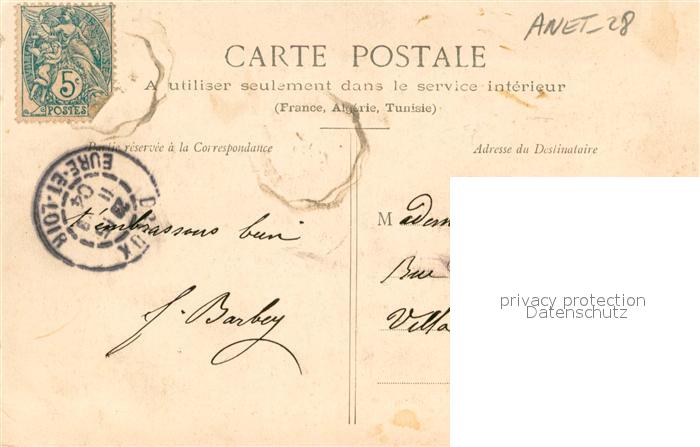 ANET_28
5c
POSTES
CARTE POSTALE
A utiliser seulement dans le service intérieur
(France, Algérie, Tunisie)
Partie réservée à la Correspondance
Adresse du Destinataire
DREUX
EURE-ET-LOIR
t'embrassons bien
f. Barbey
Madem
Rue
Villa
privacy protection
Datenschutz